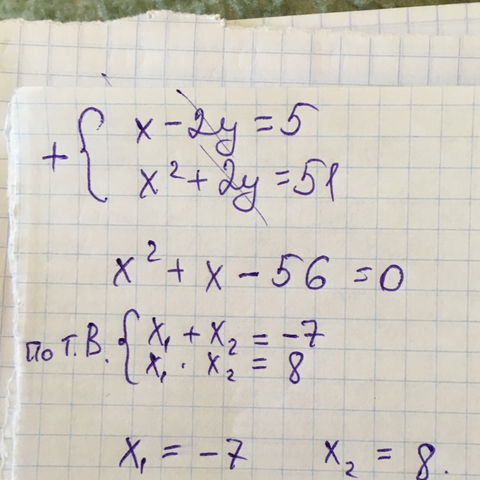 + { x - 2y = 5
x² + 2y = 51
x² + x - 56 = 0
по т. В. { x₁ + x₂ = -7
x₁ · x₂ = 8
x₁ = -7 x₂ = 8.